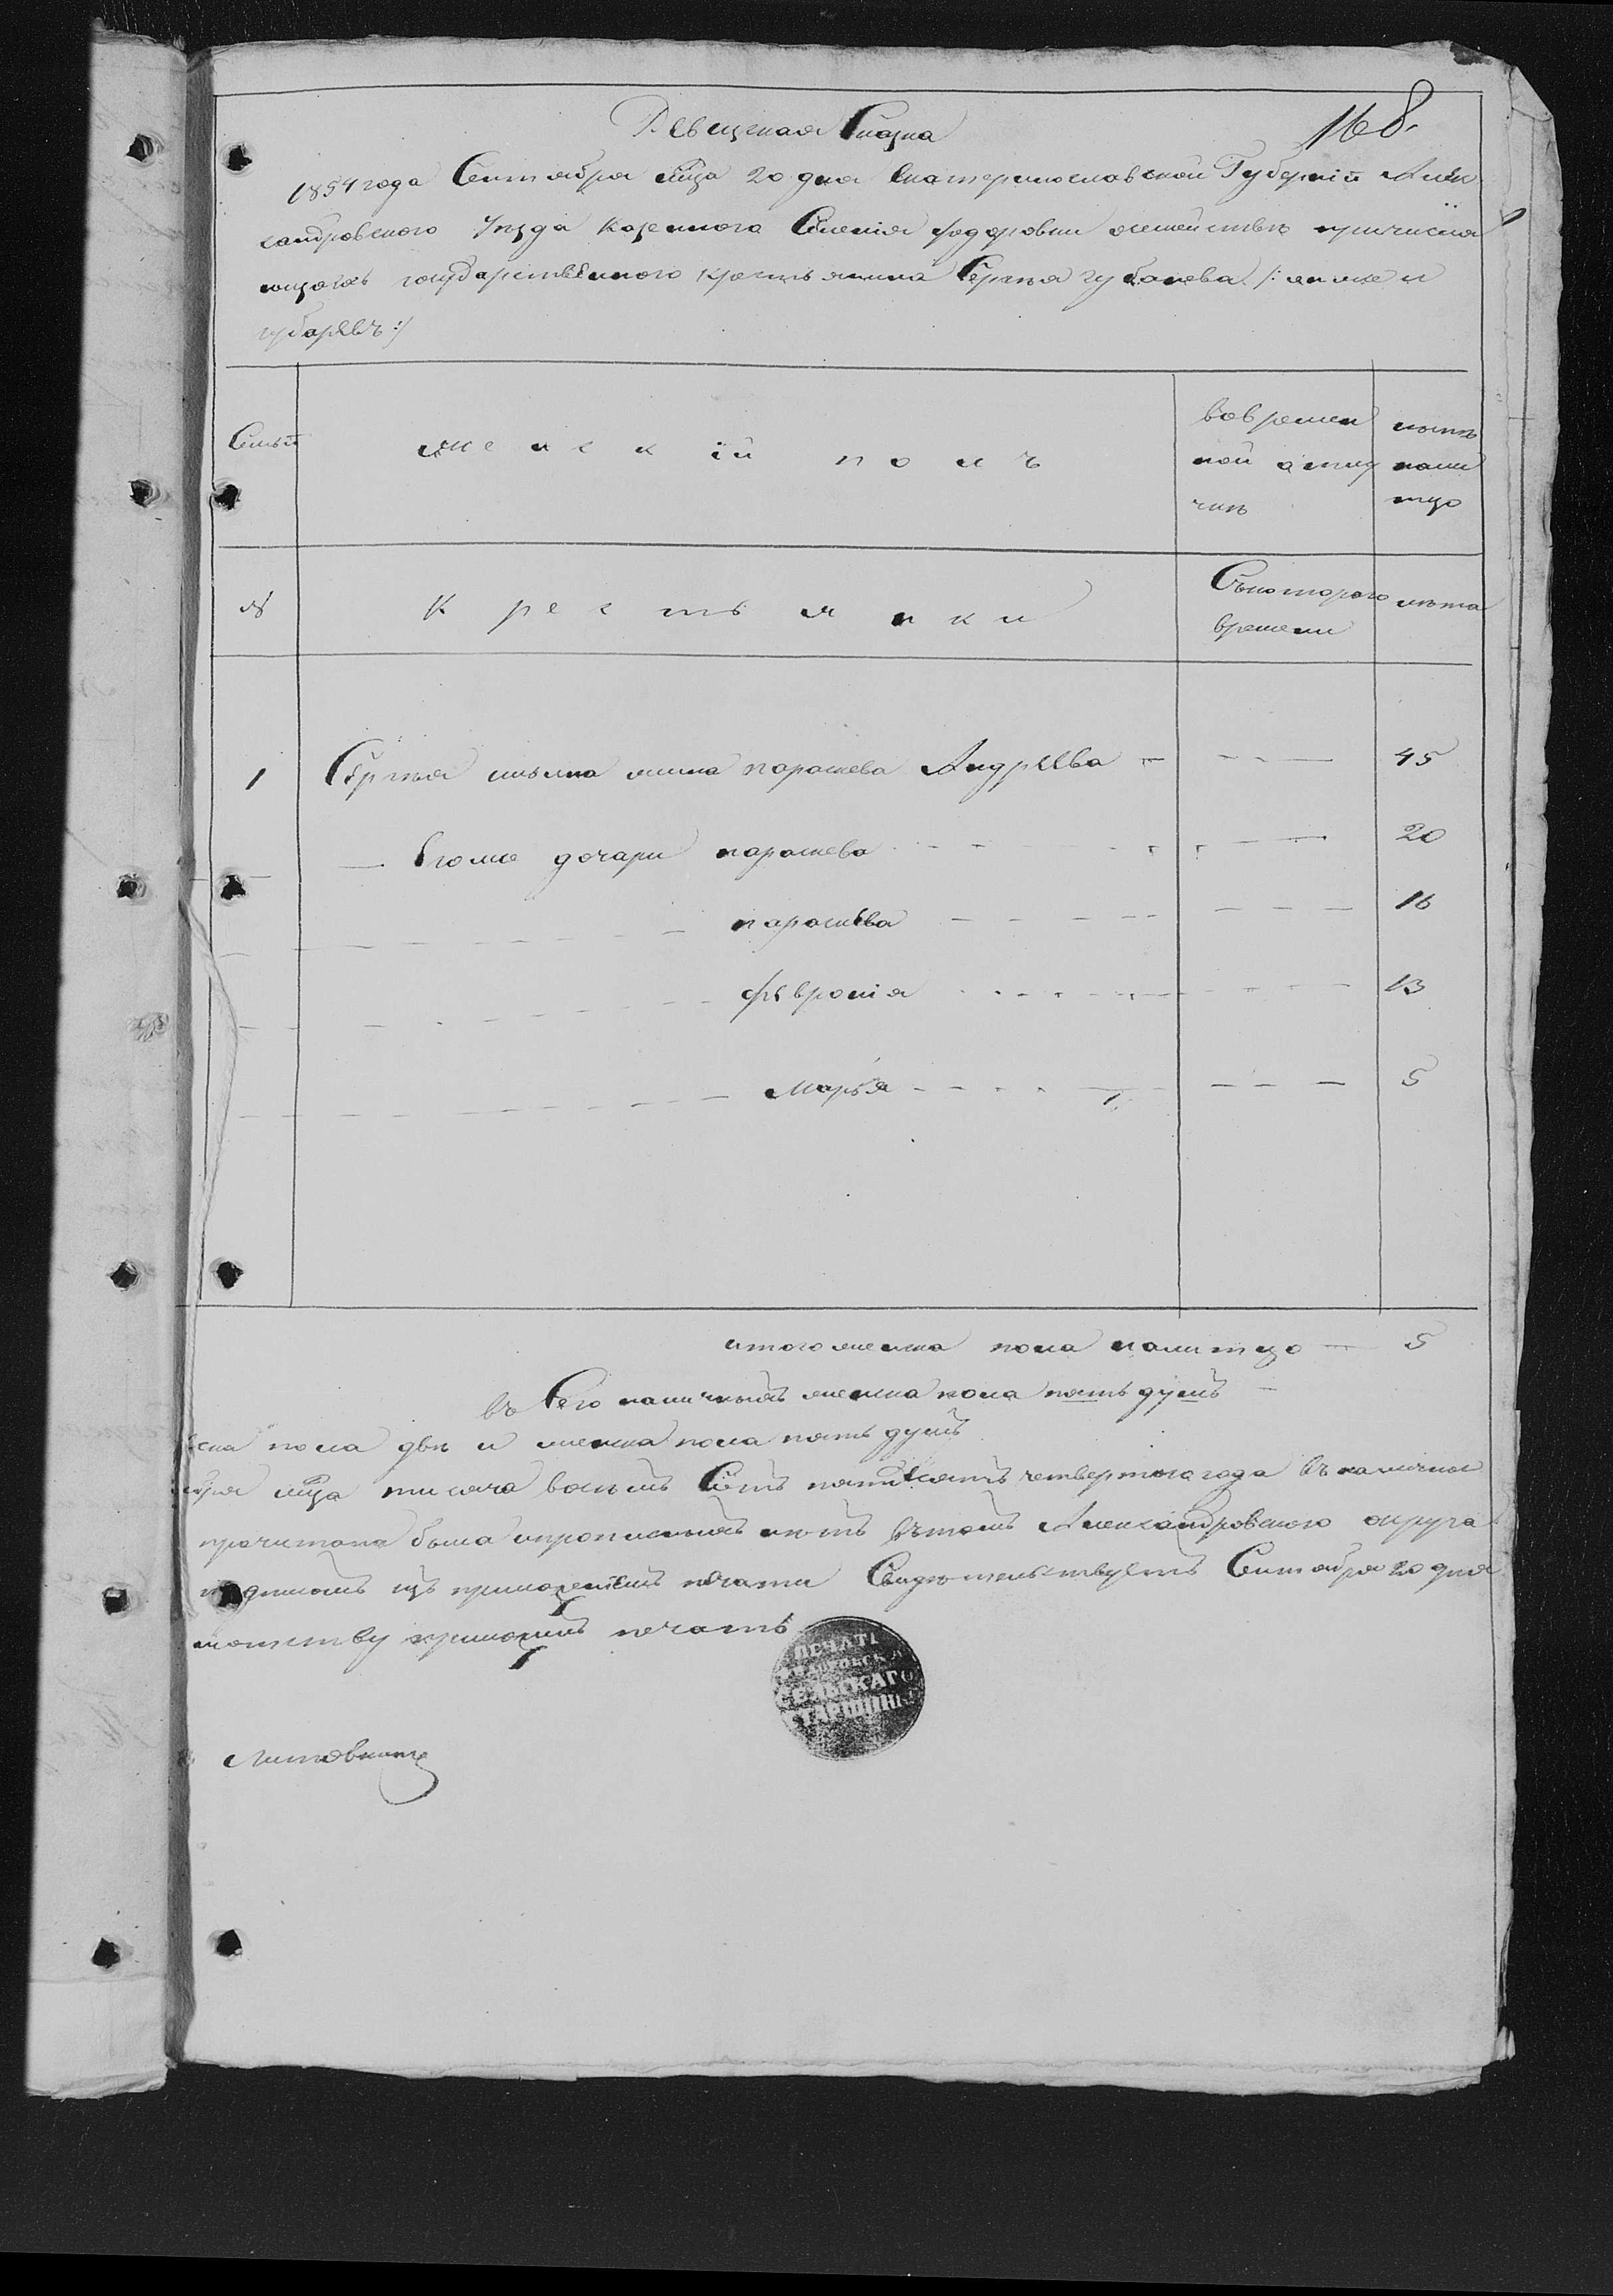 Ревизская Сказка
168.
1854 года Сентября мца 20 дня Екатеринославской Губернiи Алек
сандровского Уезда Казенного Селенiя федоровки осемействе причисля
ющагось государственного крестьянина Сергея губанева /: онже и
губаревъ :/
Семьи
женскiй полъ
вовремен
ной отлу
чке
ныне
нали
тцо
№
Крестьянки
Съкоторого
времени
лета
1 Сергея жена параскева Андреева 45
Егоже дочери параскева 20
парасковa 16
февронiя 13
Марья 5
итого женска пола налитцо 5
въ Сего наличныхъ женска пола пять душъ
ска пола две и женска пола пять душъ
бря мца тысяча восемъ Сотъ пятдесятъ четвертого года въ наличном
прочитана была ипрописныхъ нетъ вътомъ Александровского округа
подписомъ изъ приложениемъ печати Свидетельствуетъ Сентября 20 дня
приложилъ печать
ПЕЧАТЬ
СЕЛЬСКАГО
СТАРШИНЫ